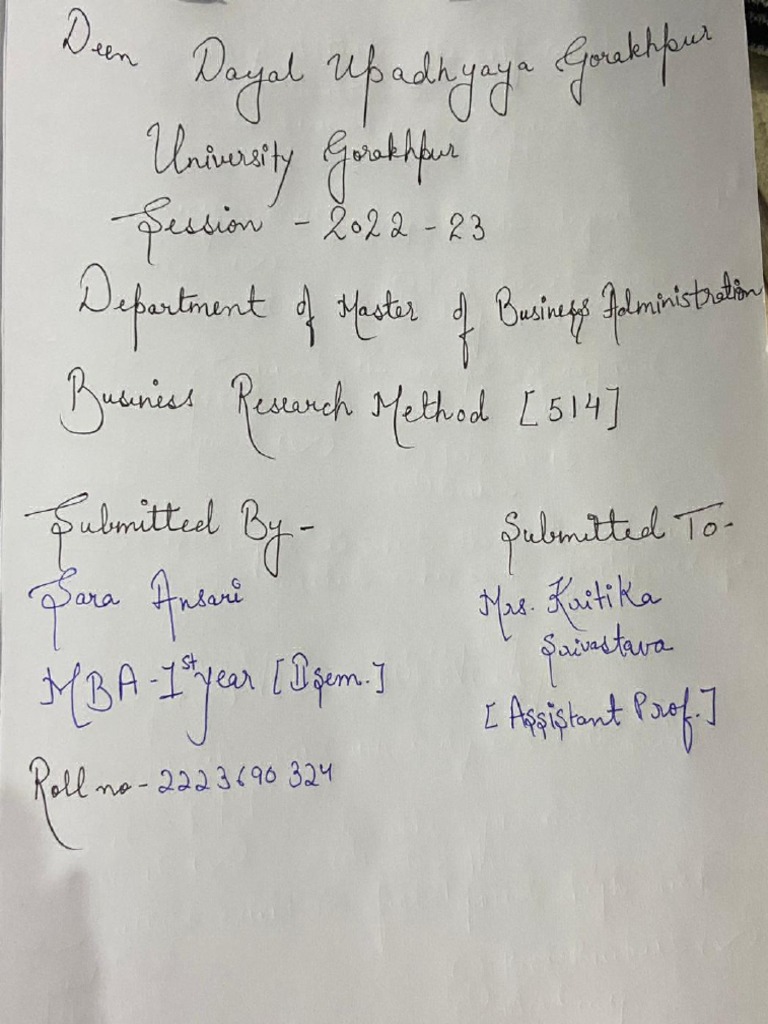 Deen Dayal Upadhyaya Gorakhpur
University Gorakhpur
Session - 2022 - 23
Department of Master of Business Administration
Business Research Method [514]
Submitted By -
Submitted To -
Sara Ansari
Mrs. Kritika
Srivastava
MBA - 1st year [II sem.]
[Assistant Prof.]
Roll no - 2223690324